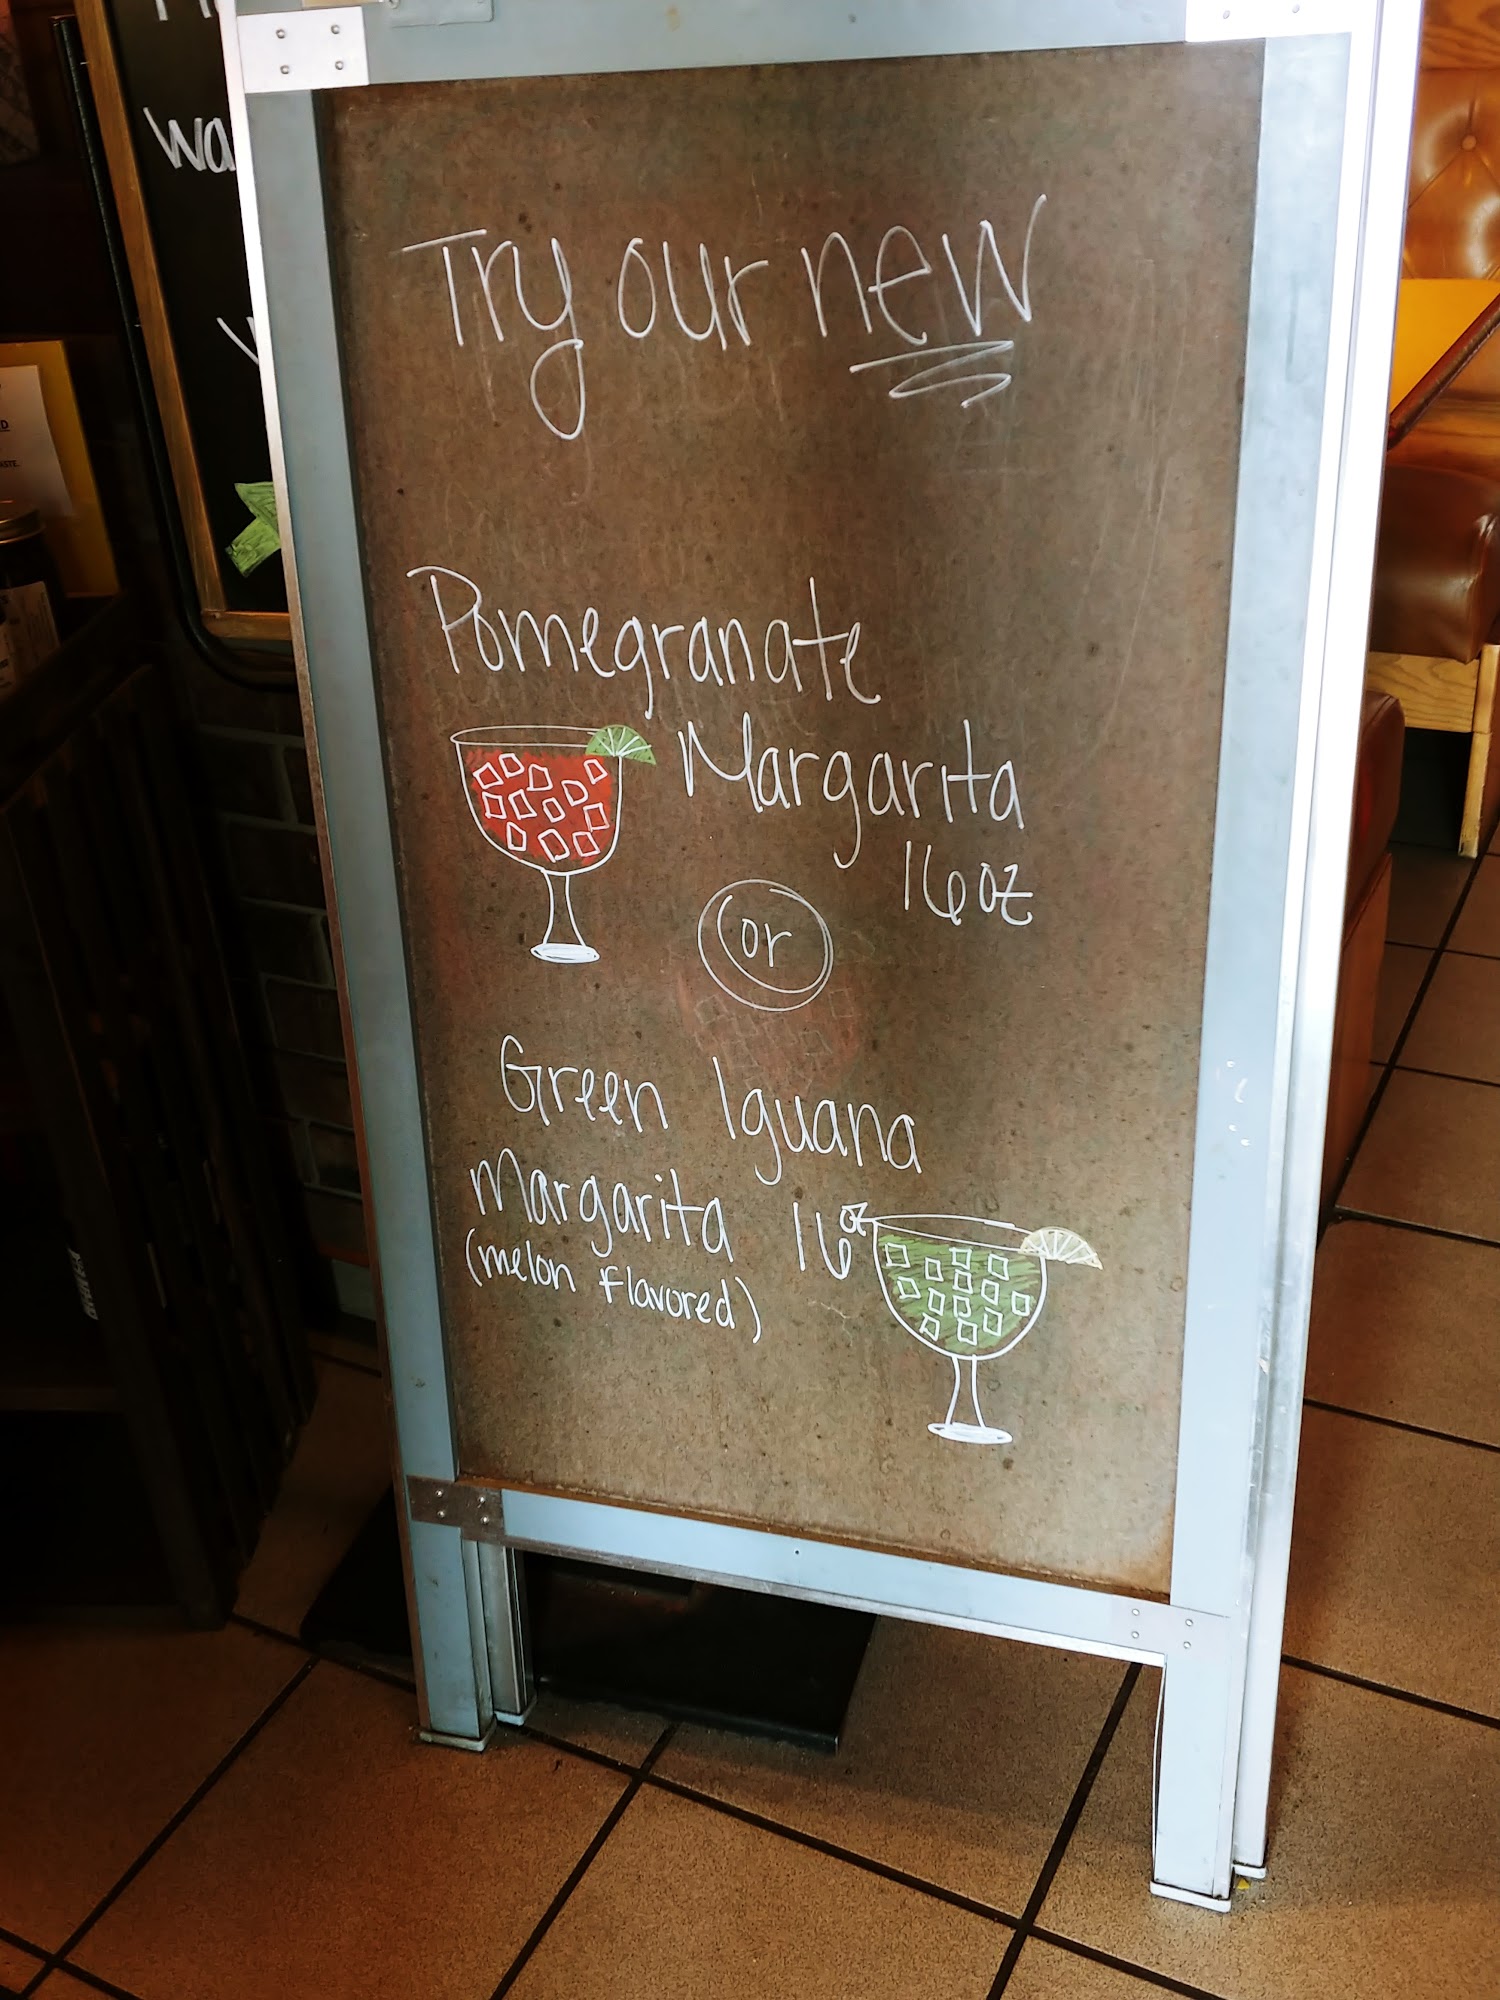 Try our new
Pomegranate
Margarita
16oz
or
Green Iguana
Margarita 16oz
(melon flavored)